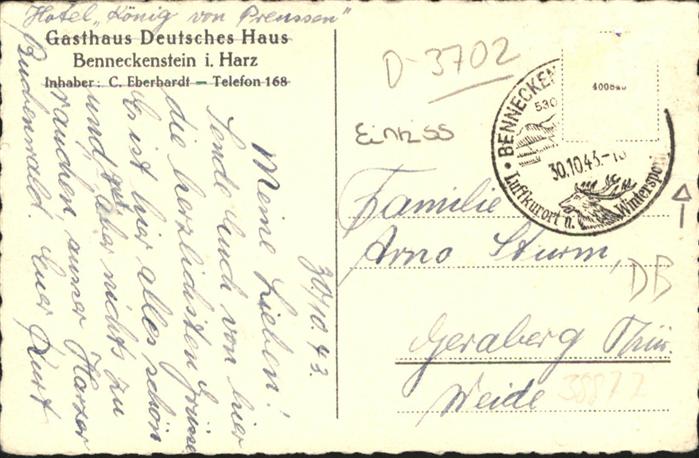 Hotel „König von Preussen"
Gasthaus Deutsches Haus
Benneckenstein i. Harz
Inhaber: C. Eberhardt – Telefon 168
30/10.43.
Meine Lieben!
Sende Euch von hier
die herzlichsten Grüsse
Es ist hier alles schön
und gut aber nichts zu
rauchen ausser Harzer
Buchenwald. Euer Kurt
D-3702
Einkss
400840
BENNECKEN
530
30.10.43.-10
Luftkurort u. Wintersport
Familie
Arno Sturm,
Geraberg Thür.
Weide
DB
38877